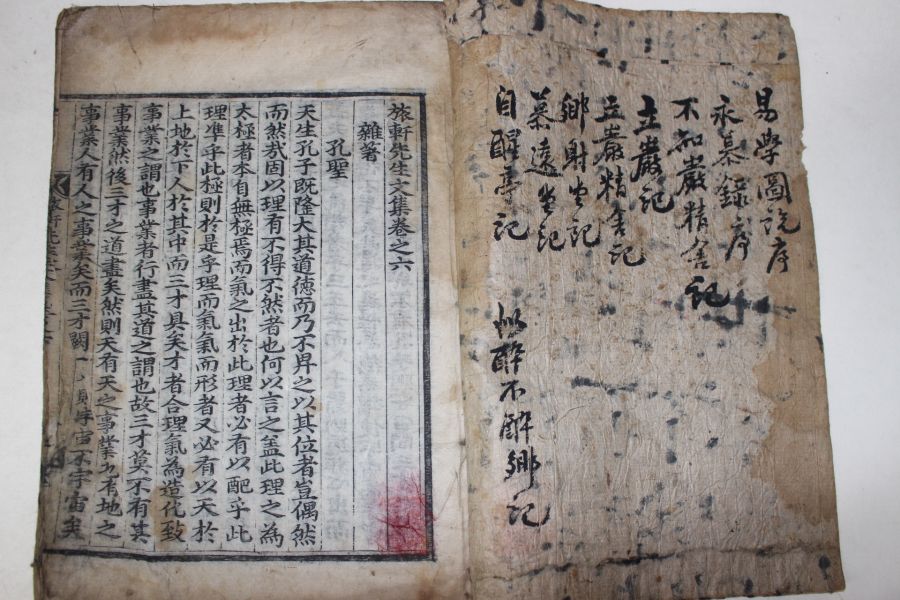 易學圖說序
永慕錄序
不知巖精舍記
立巖記
立巖精舍記
鄉射堂記
慕遠堂記
自醒亭記
似醉不醉鄉記
旅軒先生文集卷之六
雜著
孔聖
天生孔子旣隆大其道德而乃不畀之以其位者豈偶然
而然哉固以理有不得不然者也何以言之盖此理之為
太極者本自無極焉而氣之出於此理者必有以配乎此
理準乎此極則於是乎理而氣氣而形者又必有以天於
上地於下人於其中而三才具矣才者合理氣為造化致
事業之謂也事業者行盡其道之謂也故三才莫不有其
事業然後三才之道盡矣然則天有天之事業地有地之
事業人有人之事業矣而三才闕一 宇宙不宇宙矣